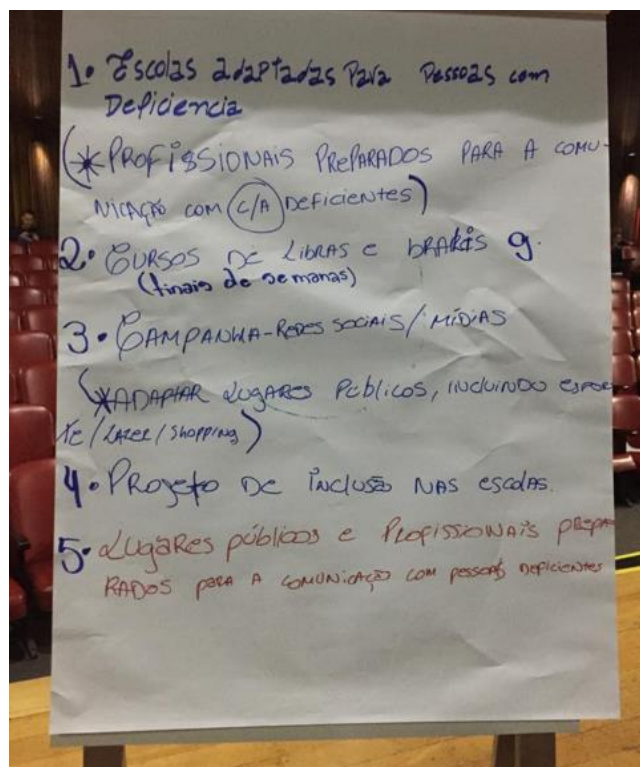 1. Escolas adaptadas Para Pessoas com
Deficiencia
(*PROFISSIONAIS PREPARADOS PARA A COMU-
NICAÇÃO COM (C/A) DEFICIENTES)
2. CURSOS DE LIBRAS E
(finais de semanas)
3. CAMPANHA-REDES SOCIAIS/MÍDIAS
(*ADAPTAR LUGARES PÚBLICOS, INCLUINDO ESPOR-
TE/LAZER/SHOPPING)
4. PROJETO DE INCLUSÃO NAS ESCOLAS.
5. LUGARES PÚBLICOS E PROFISSIONAIS PREPA
RADOS PARA A COMUNICAÇÃO COM PESSOAS DEFICIENTES